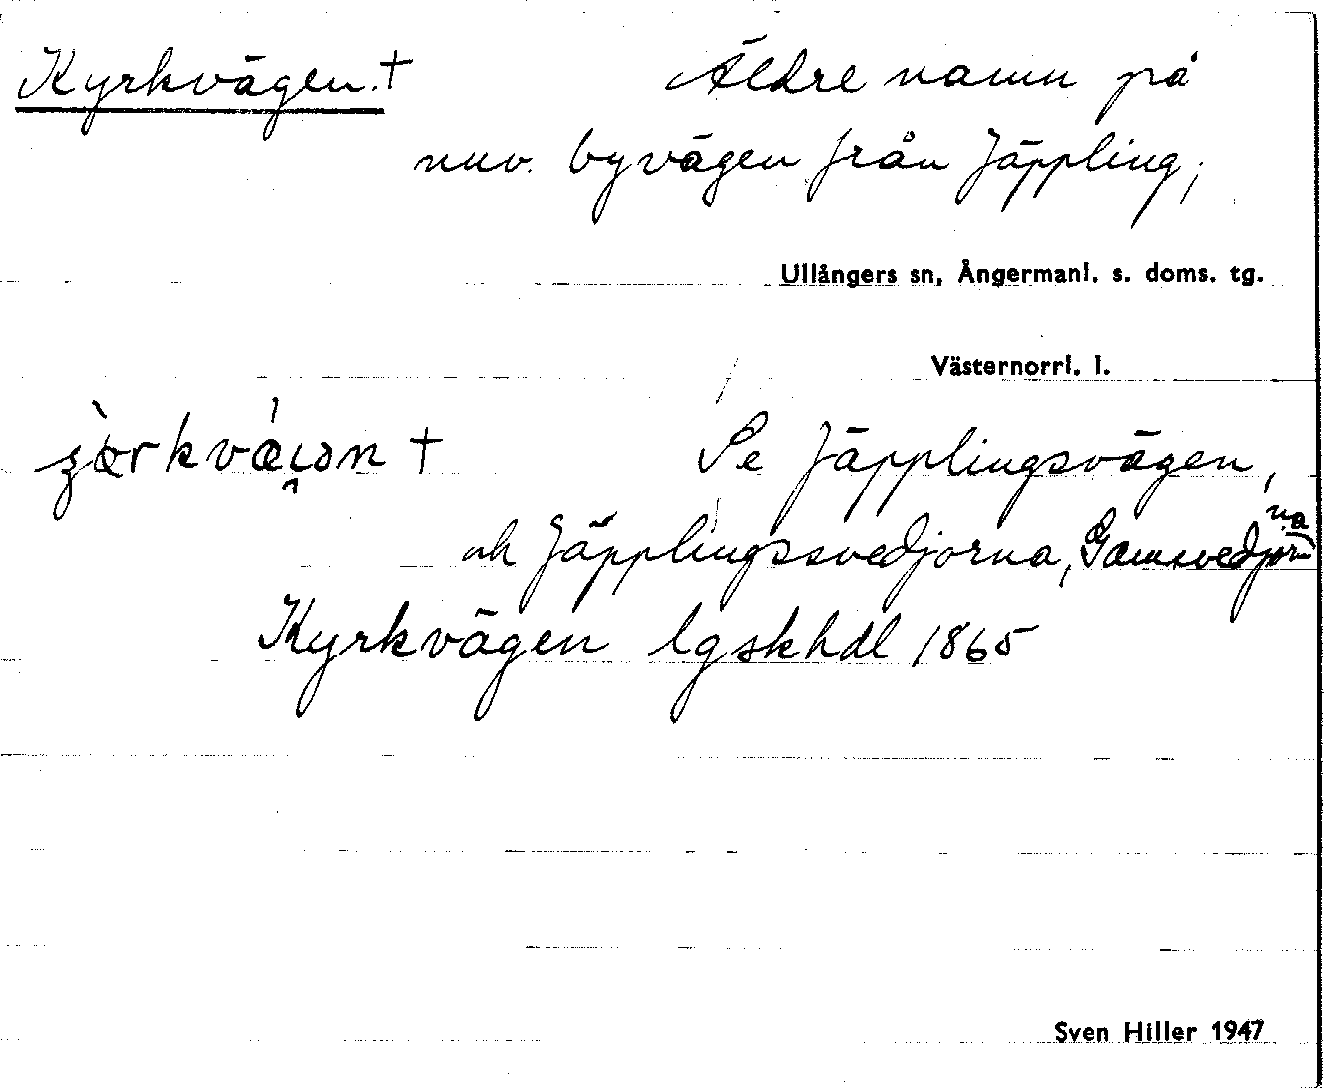 Kyrkvägen. † Äldre namn på
nuv. byvägen från Jäppling;
Ullångers sn, Ångermanl. s. doms. tg.
Västernorrl. l.
† Se Jäpplingsvägen,
och Jäpplingssvedjorna, Gamsvedjorna
Kyrkvägen lgskhdl 1865
Sven Hiller 1947